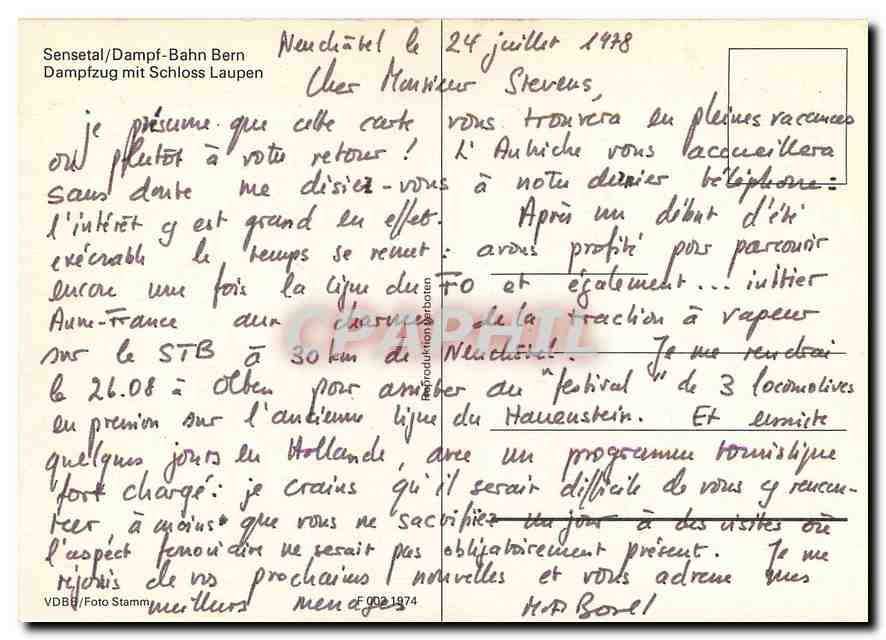 Sensetal/Dampf-Bahn Bern
Dampfzug mit Schloss Laupen
Neuchâtel le 24 juillet 1978
Cher Monsieur Stevens,
je présume que cette carte vous trouvera en pleines vacances
ou plutôt à votre retour ! L'Autriche vous accueillera
sans doute me disiez-vous à notre dernier téléphone :
l'intérêt y est grand en effet. Après un début d'été
exécrable le temps se remet : avons profité pour parcourir
encore une fois la ligne du FO et également... initier
Anne-France aux charmes de la traction à vapeur
sur le STB à 30 km de Neuchâtel. Je me rendrai
le 26.08 à Olten pour assister au "festival" de 3 locomotives
en pression sur l'ancienne ligne du Hauenstein. Et ensuite
quelques jours en Hollande, avec un programme touristique
fort chargé : je crains qu'il serait difficile de vous y rencon-
trer à moins que vous ne sacrifiez un jour à des visites où
l'aspect ferroviaire ne serait pas obligatoirement présent. Je me
réjouis de vos prochaines nouvelles et vous adresse mes
meilleurs messages
Borel
Reproduktion verboten
VDBB/Foto Stamm
F 002 1974
CPAPHIL